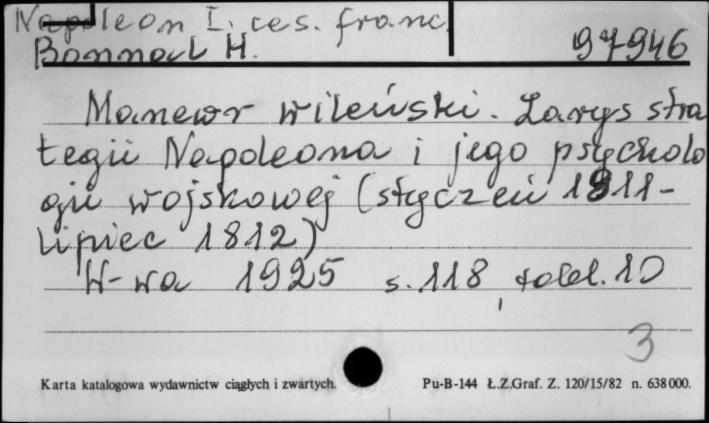 Napoleon I. ces. franc.
Bonnal H. 97946
Manewr wileński. Zarys stra
tegii Napoleona i jego psycholo
gii wojskowej (styczeń 1811-
lipiec 1812)
W-wa 1925 s. 118, tabl. 10
3
Karta katalogowa wydawnictw ciągłych i zwartych. Pu-B-144 Ł.Z.Graf. Z. 120/15/82 n. 638 000.